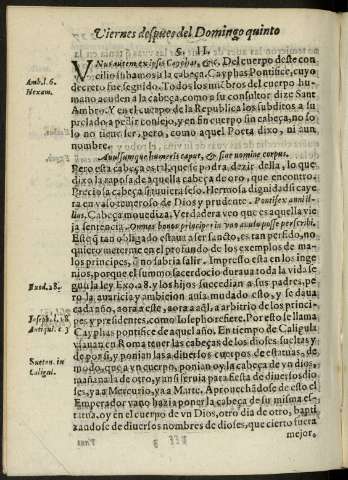 Viernes despues del Domingo quinto
§. II.
VNus autem ex ipsis Cayphas, &c. Del cuerpo deste con
cilio subamos a la cabeça. Cayphas Pontifice, cuyo
Amb. l. 6.
Hexam.
decreto fue seguido. Todos los miẽbros del cuerpo hu
mano acuden a la cabeça, como a su consultor dize Sant
Ambro. Y en el cuerpo de la Republica los subditos a su
prelado a pedir consejo, y en fin cuerpo sin cabeça, no so
lo no tiene ser, pero, como aquel Poeta dixo, ni aun
nombre.
Auulsumque humeris caput, & sine nomine corpus.
Pero esta cabeça es tal, que se podra dezir della, lo que
dixo la raposa de aquella cabeça de oro, que encontro.
Preciosa cabeça si tuuiera seso. Hermosa dignidad si caye
ra en vaso temeroso de Dios y prudente. Pontifex anni il-
lius. Cabeça mouediza. Verdadera veo que es aquella vie
ja sentencia. Omnes bonos principes in vno anulo posse perscribi.
Este q̃ tan obligado estaua a ser sancto, es tan perdido, no
quiero meterme en el profundo de los exemplos de ma-
los principes, q̃ no sabria salir. Impresso esta en los inge
nios, porque el summo sacerdocio duraua toda la vida se
Exod. 28.
gun la ley Exo. 28. y los hijos succedian a sus padres, pe
ro la auaricia y ambicion auia mudado esto, y se daua
cada año, aora a este, aora a aq̃l, a arbitrio de los princi-
Ioseph. l. 18.
Antiqui. c. 3
pes, y presidentes, como Iosepho refiere. Por esto se llama
Cayphas pontifice de aquel año. En tiempo de Caligula
vsauan en Roma tener las cabeças de los dioses sueltas y
de por si, y ponian las a diuersos cuerpos de estatuas, de
Sueton. in
Caligul.
modo, que a vn cuerpo, ponian oy la cabeça de vn dios
mañana la de otro, y ansi seruia para fiesta de diuersos dio
ses, ya a Mercurio, ya a Marte. Aprouechãdose de esto el
Emperador vano hazia poner la cabeça de su misma es-
titua, oy en el cuerpo de vn Dios, otro dia de otro, bapti
zandose de diuersos nombres de dioses, que cierto fuera
mejor,